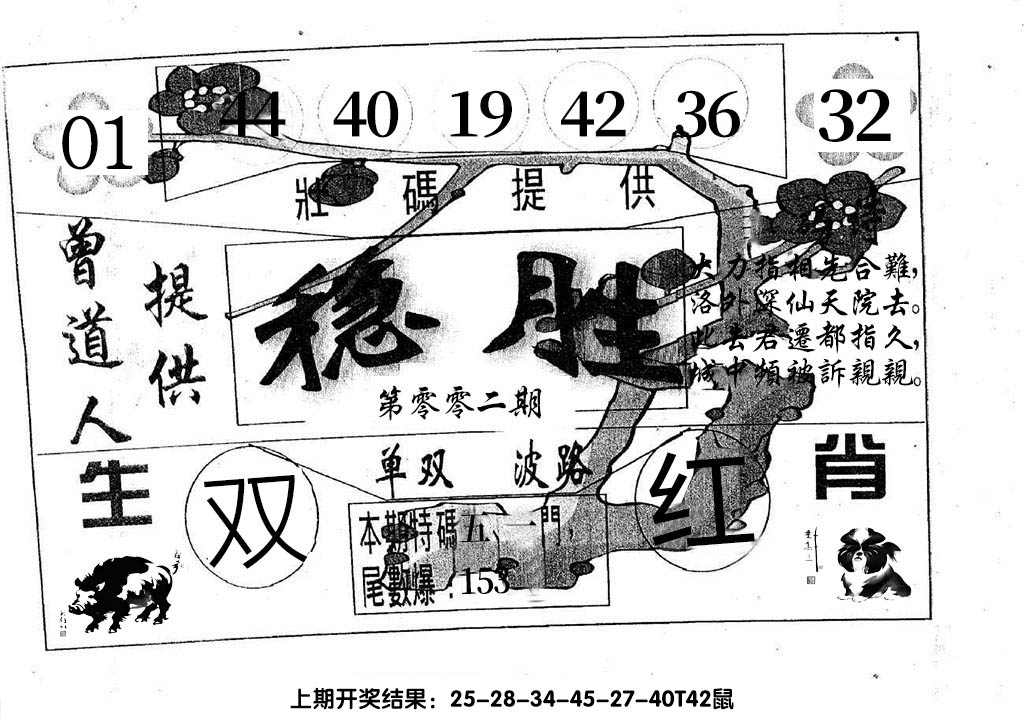 01 44 40 19 42 36 32
壯碼提供
特
曾道人
提供
稳胜
第零零二期
大力指相先合難，
洛外深仙天院去。
此去若遷都指久，
城中頻被訴親親。
单双 波路
生肖
双
红
本期特碼五、一門，
尾數爆：153
上期开奖结果：25-28-34-45-27-40T42鼠